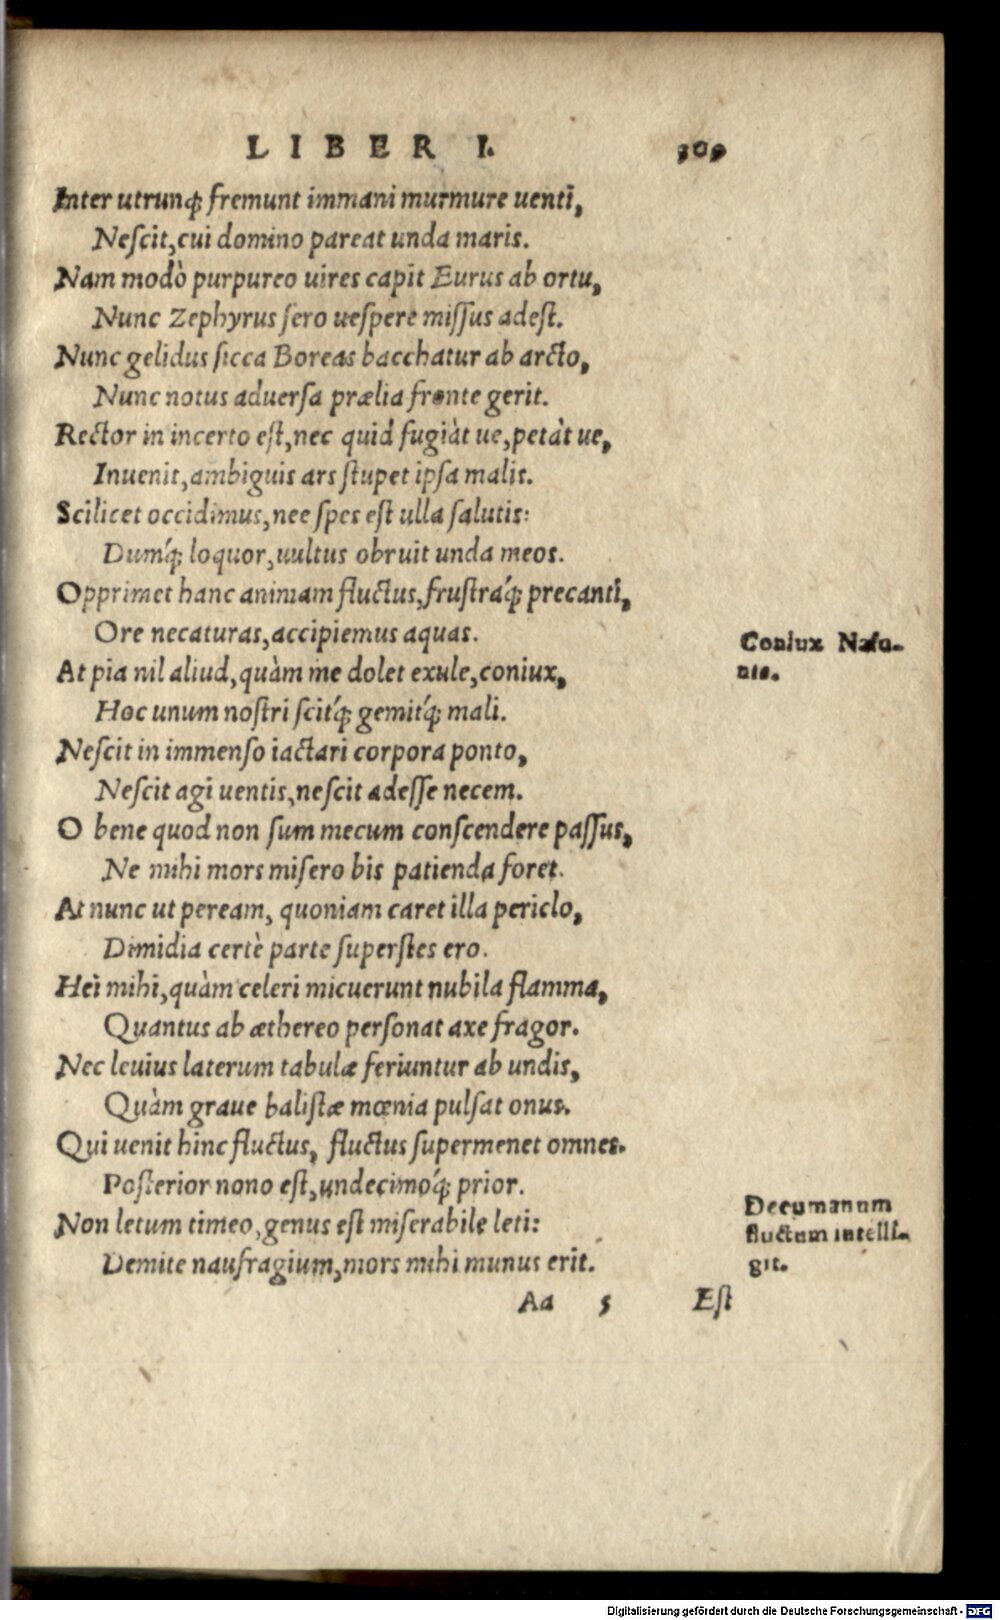 LIBER I. 309
Inter utrunq́; fremunt immani murmure uenti,
Neſcit, cui domino pareat unda maris.
Nam modò purpureo uires capit Eurus ab ortu,
Nunc Zephyrus ſero ueſpere miſſus adeſt.
Nunc gelidus ſicca Boreas bacchatur ab arcto,
Nunc notus aduerſa prælia fronte gerit.
Rector in incerto eſt, nec quid fugiàt ue, petàt ue,
Inuenit, ambiguis ars ſtupet ipſa malis.
Scilicet occidimus, nee ſpes eſt ulla ſalutis:
Dumq́; loquor, uultus obruit unda meos.
Opprimet hanc animam fluctus, fruſtráq; precanti,
Ore necaturas, accipiemus aquas.
Coniux Naſo-
nis.
At pia nil aliud, quàm me dolet exule, coniux,
Hoc unum noſtri ſcitq́; gemitq́; mali.
Neſcit in immenſo iactari corpora ponto,
Neſcit agi uentis, neſcit adeſſe necem.
O bene quod non ſum mecum conſcendere paſſus,
Ne mihi mors miſero bis patienda foret.
At nunc ut peream, quoniam caret illa periclo,
Dimidia certè parte ſuperſtes ero.
Hei mihi, quàm celeri micuerunt nubila flamma,
Quantus ab æthereo perſonat axe fragor.
Nec leuius laterum tabulæ feriuntur ab undis,
Quàm graue baliſtæ mœnia pulſat onus.
Qui uenit hinc fluctus, fluctus ſupermenet omnes.
Poſterior nono eſt, undecimoq́; prior.
Decumanum
fluctum intelli-
git.
Non letum timeo, genus eſt miſerabile leti:
Demite naufragium, mors mihi munus erit.
Aa 5 Eſt
Digitalisierung gefördert durch die Deutsche Forschungsgemeinschaft - DFG